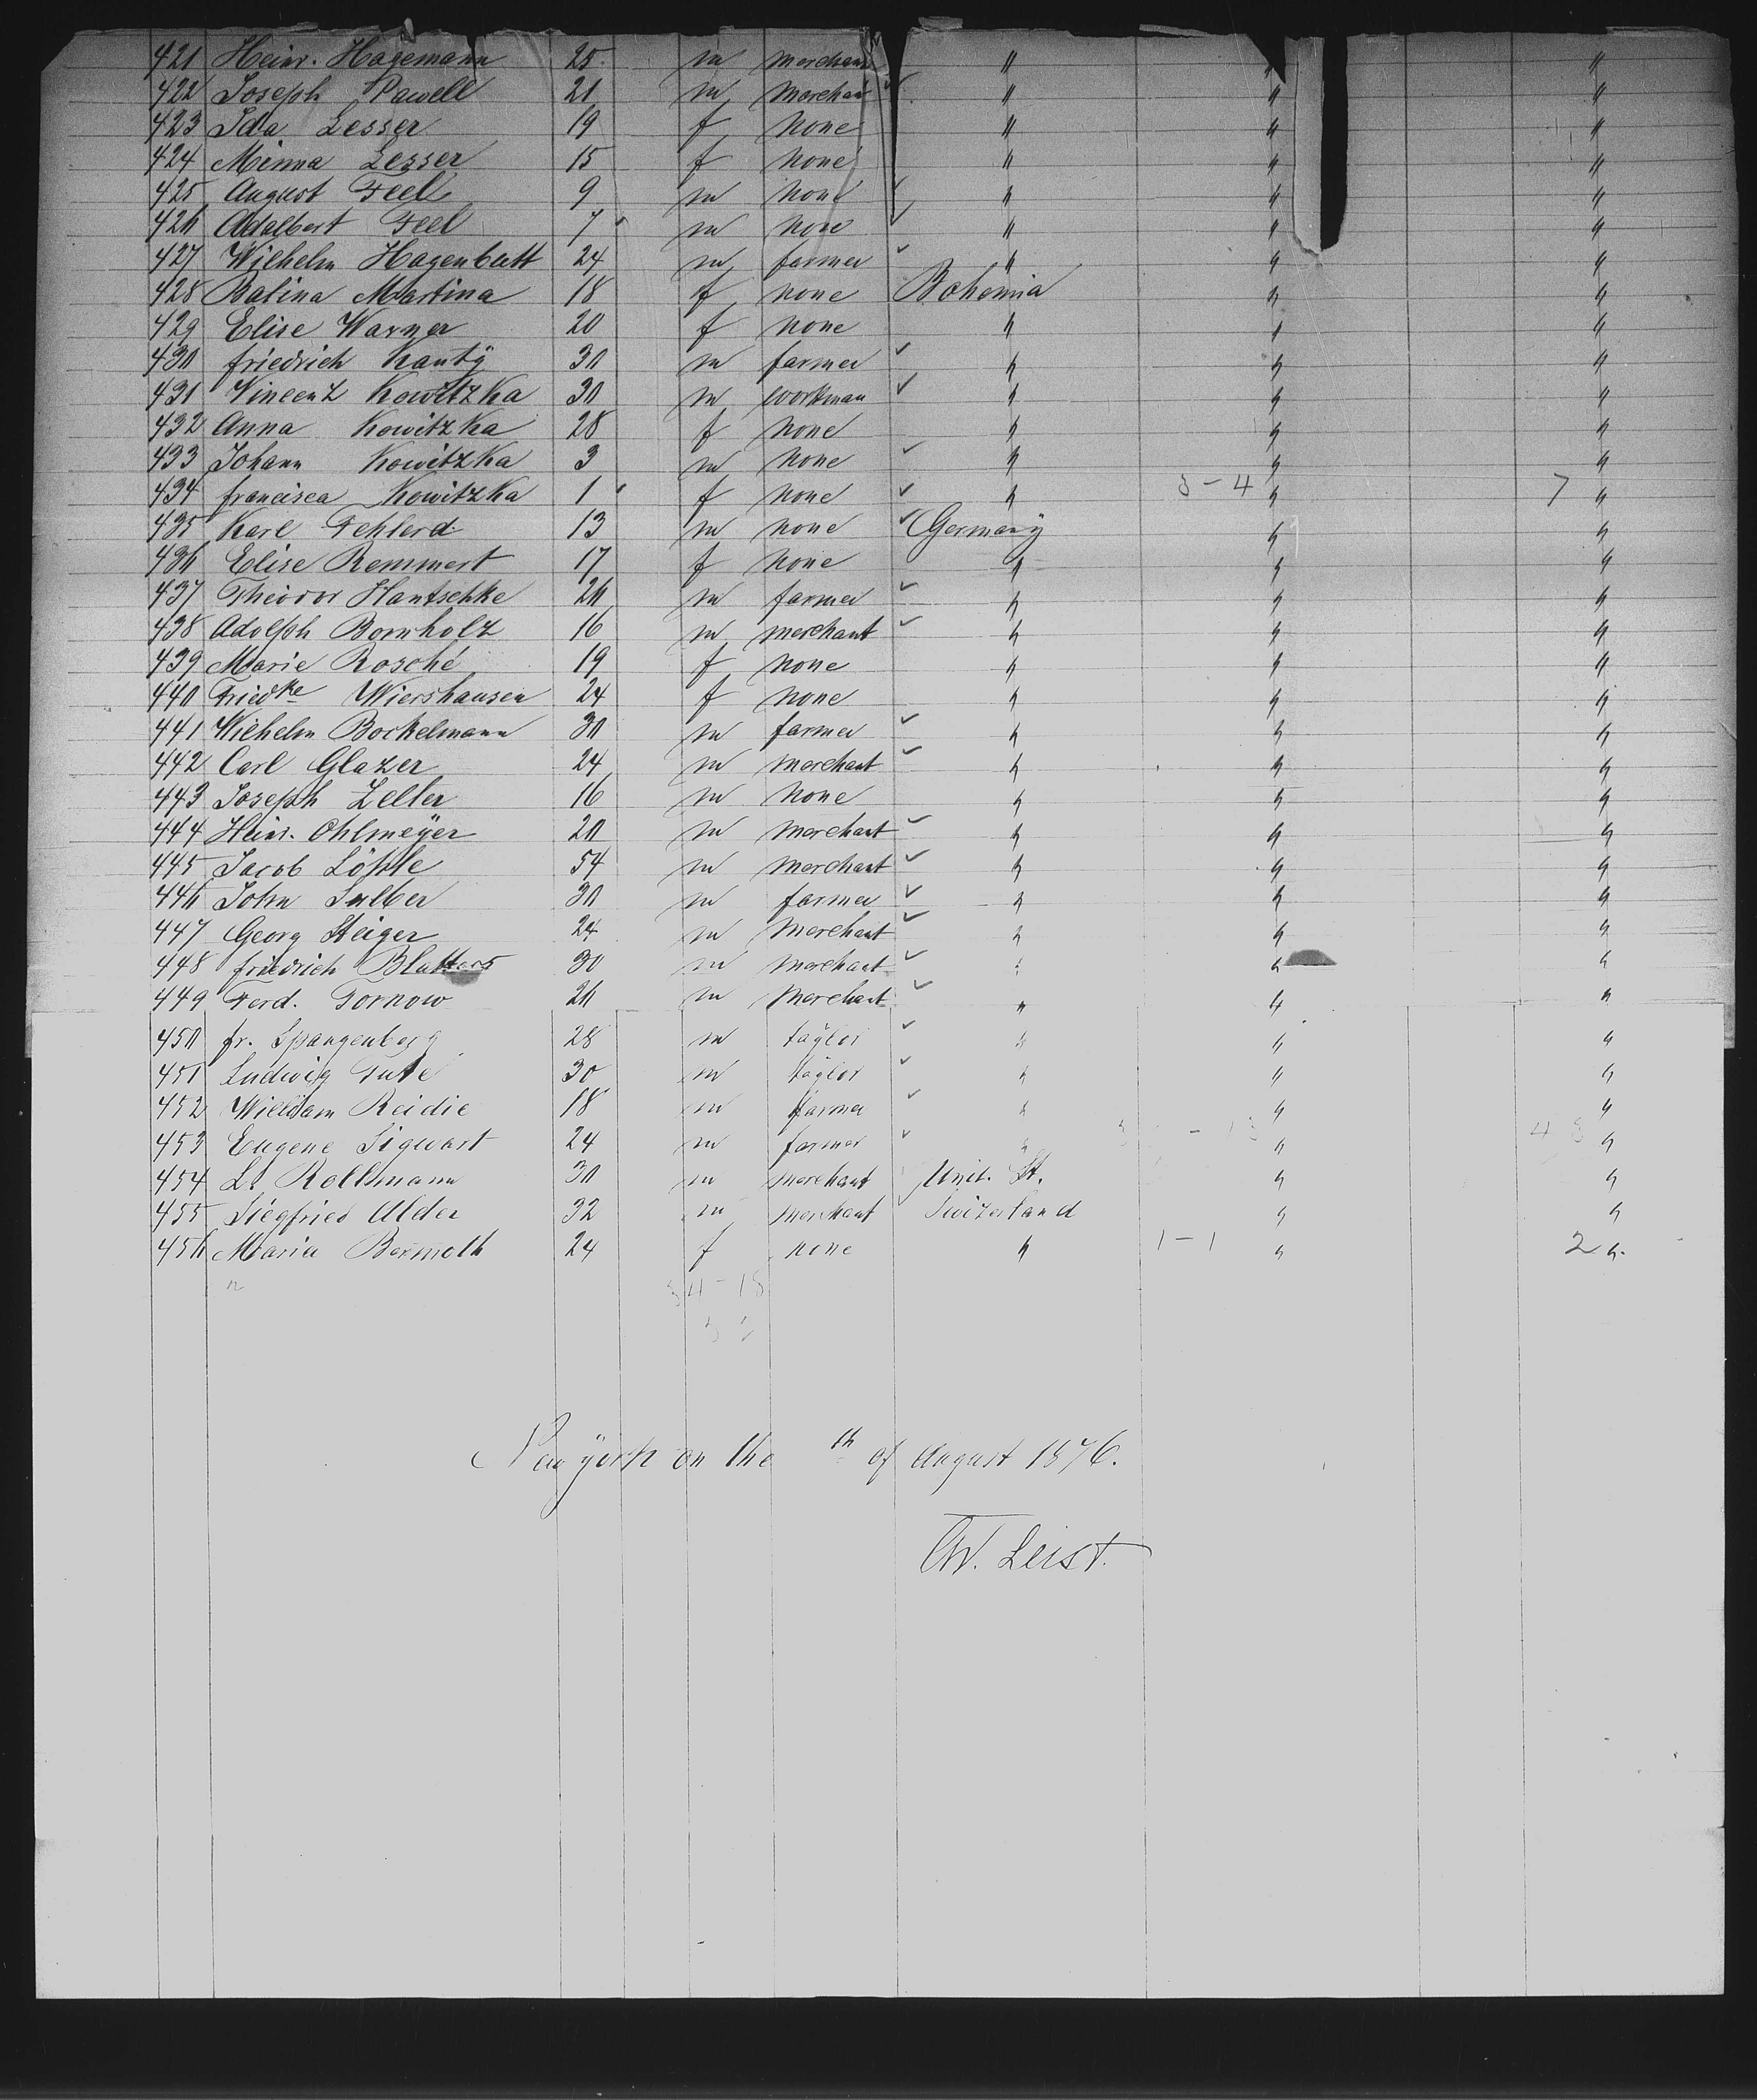 421 Heinr. Hagemann 25 m merchant " " "
422 Joseph Pawell 21 m merchant " " "
423 Ida Lesser 19 f none " " "
424 Minna Lesser 15 f none " " "
425 August Feel 9 m none " " "
426 Adalbert Feel 7 m none " " "
427 Wilhelm Hagenbutt 24 m farmer " " "
428 Balina Martina 18 f none Bohemia " "
429 Elise Warner 20 f none " " "
430 Friedrich Kantÿ 30 m farmer " " "
431 Vincenz Kowitzka 30 m workman " " "
432 Anna Kowitzka 28 f none " " "
433 Johann Kowitzka 3 m none " " "
434 Francisca Kowitzka 1 f none " 3-4 " 7 "
435 Karl Fehlerd 13 m none Germanÿ " "
436 Elise Remmert 17 f none " " "
437 Theodor Hantschke 26 m farmer " " "
438 Adolph Bornholz 16 m merchant " " "
439 Marie Rosché 19 f none " " "
440 Friedke Wiershausen 24 f none " " "
441 Wilhelm Bockelmann 30 m farmer " " "
442 Carl Glazer 24 m merchant " " "
443 Joseph Zeller 16 m none " " "
444 Heinr. Ohlmeÿer 20 m merchant " " "
445 Jacob 54 m merchant " " "
446 John Sulber 30 m farmer " " "
447 Georg Steiger 24 m merchant " " "
448 Friedrich Blatters 30 m merchant " " "
449 Ferd. Tornow 26 m merchant " " "
450 Fr. Spangenberg 28 m taÿlor " " "
451 Ludwig Tute 30 m taÿlor " " "
452 William Reidie 18 m farmer " " "
453 Eugene Sigwart 24 m farmer " " "
454 L. Rollmann 30 m merchant Unit. St. " "
455 Siegfried Alder 32 m merchant Swizerland " "
456 Maria Bermoth 24 f none " 1-1 " 2 "
34-18
New ÿork on the th of August 1876.
W. Leist.